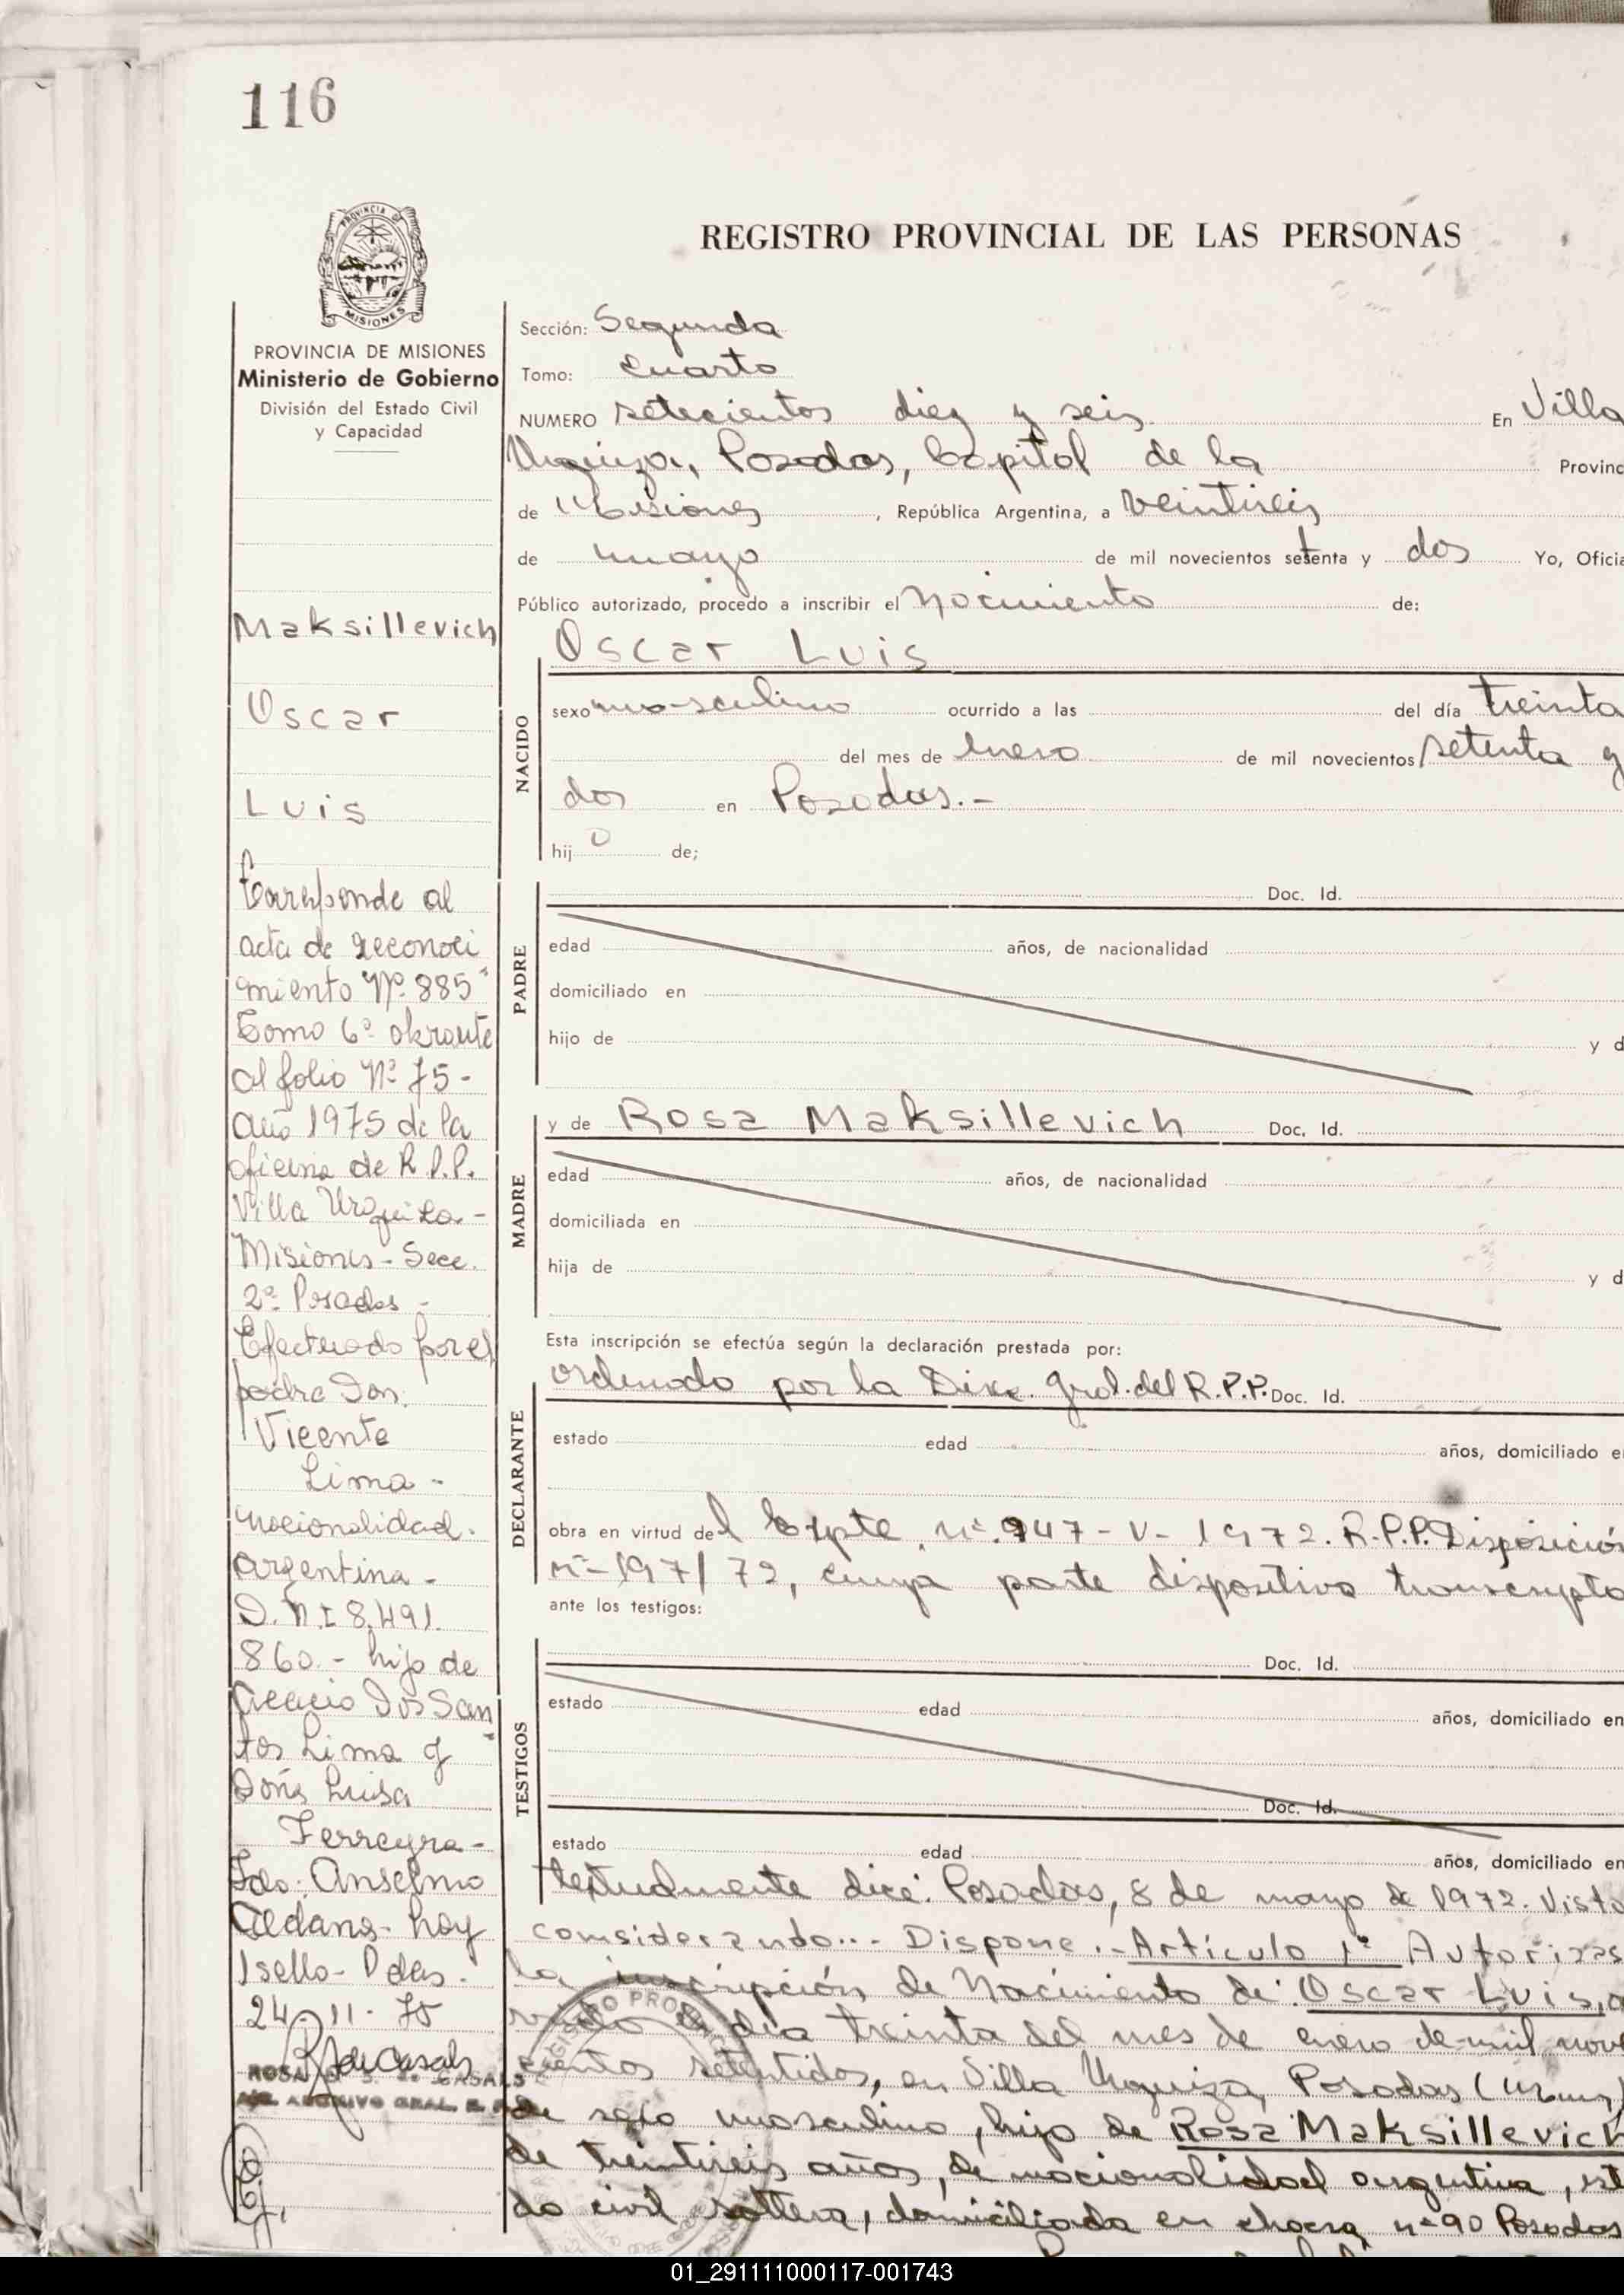 116
PROVINCIA DE MISIONES
Ministerio de Gobierno
División del Estado Civil
y Capacidad
Maksillevich
Oscar
Luis
Corresponde al
acta de reconoci
miento Nº 885"
Tomo 6º obrante
al folio Nº 75-
año 1975 de la
oficina de R.P.P.
Villa Urquiza.-
Misiones - Secc.
2º Posadas -
Efectuado por el
padre Don.
Vicente
Lima -
nacionalidad.
argentina -
D.N.I 8.491.
860.- hijo de
Acacio Dos San
tos Lima y
Doña Luisa
Ferreyra-
Fdo: Anselmo
Aldana- hay
1 sello- Pdas.
24-11-75
ROSA CASALS
ARCHIVO GRAL. R.
REGISTRO PROVINCIAL DE LAS PERSONAS
Sección: Segunda
Tomo: Cuarto
NUMERO setecientos diez y seis En Villa
Urquiza, Posadas, Capital de la Provinc
de Misiones, República Argentina, a veintiseis
de mayo de mil novecientos setenta y dos Yo, Oficia
Público autorizado, procedo a inscribir el Nacimiento de:
Oscar Luis
NACIDO
sexo masculino ocurrido a las del día treinta
del mes de Enero de mil novecientos setenta y
dos en Posadas.-
hijo de;
PADRE
Doc. Id.
edad años, de nacionalidad
domiciliado en
hijo de y d
MADRE
y de Rosa Maksillevich Doc. Id.
edad años, de nacionalidad
domiciliada en
hija de y d
Esta inscripción se efectúa según la declaración prestada por:
DECLARANTE
ordenado por la Direc. Gral. del R.P.P. Doc. Id.
estado edad años, domiciliado e
obra en virtud del Expte. nº 947-V-1972. R.P.P. Disposición
nº-197/72, cuya parte dispositiva transcripta
ante los testigos:
TESTIGOS
Doc. Id.
estado edad años, domiciliado en
Doc. Id.
estado edad años, domiciliado en
textualmente dice: Posadas, 8 de mayo de 1972. Visto
considerando... - Dispone.- Artículo 1º Autorizas
la inscripción de Nacimiento de: Oscar Luis,
el día treinta del mes de enero de mil nove
cientos setentidos, en Villa Urquiza, Posadas (Mnes)
de sexo masculino, hijo de Rosa Maksillevich
de treintiseis años, de nacionalidad argentina, est
do civil soltera, domiciliada en chacra nº 90 Posadas
01_291111000117-001743